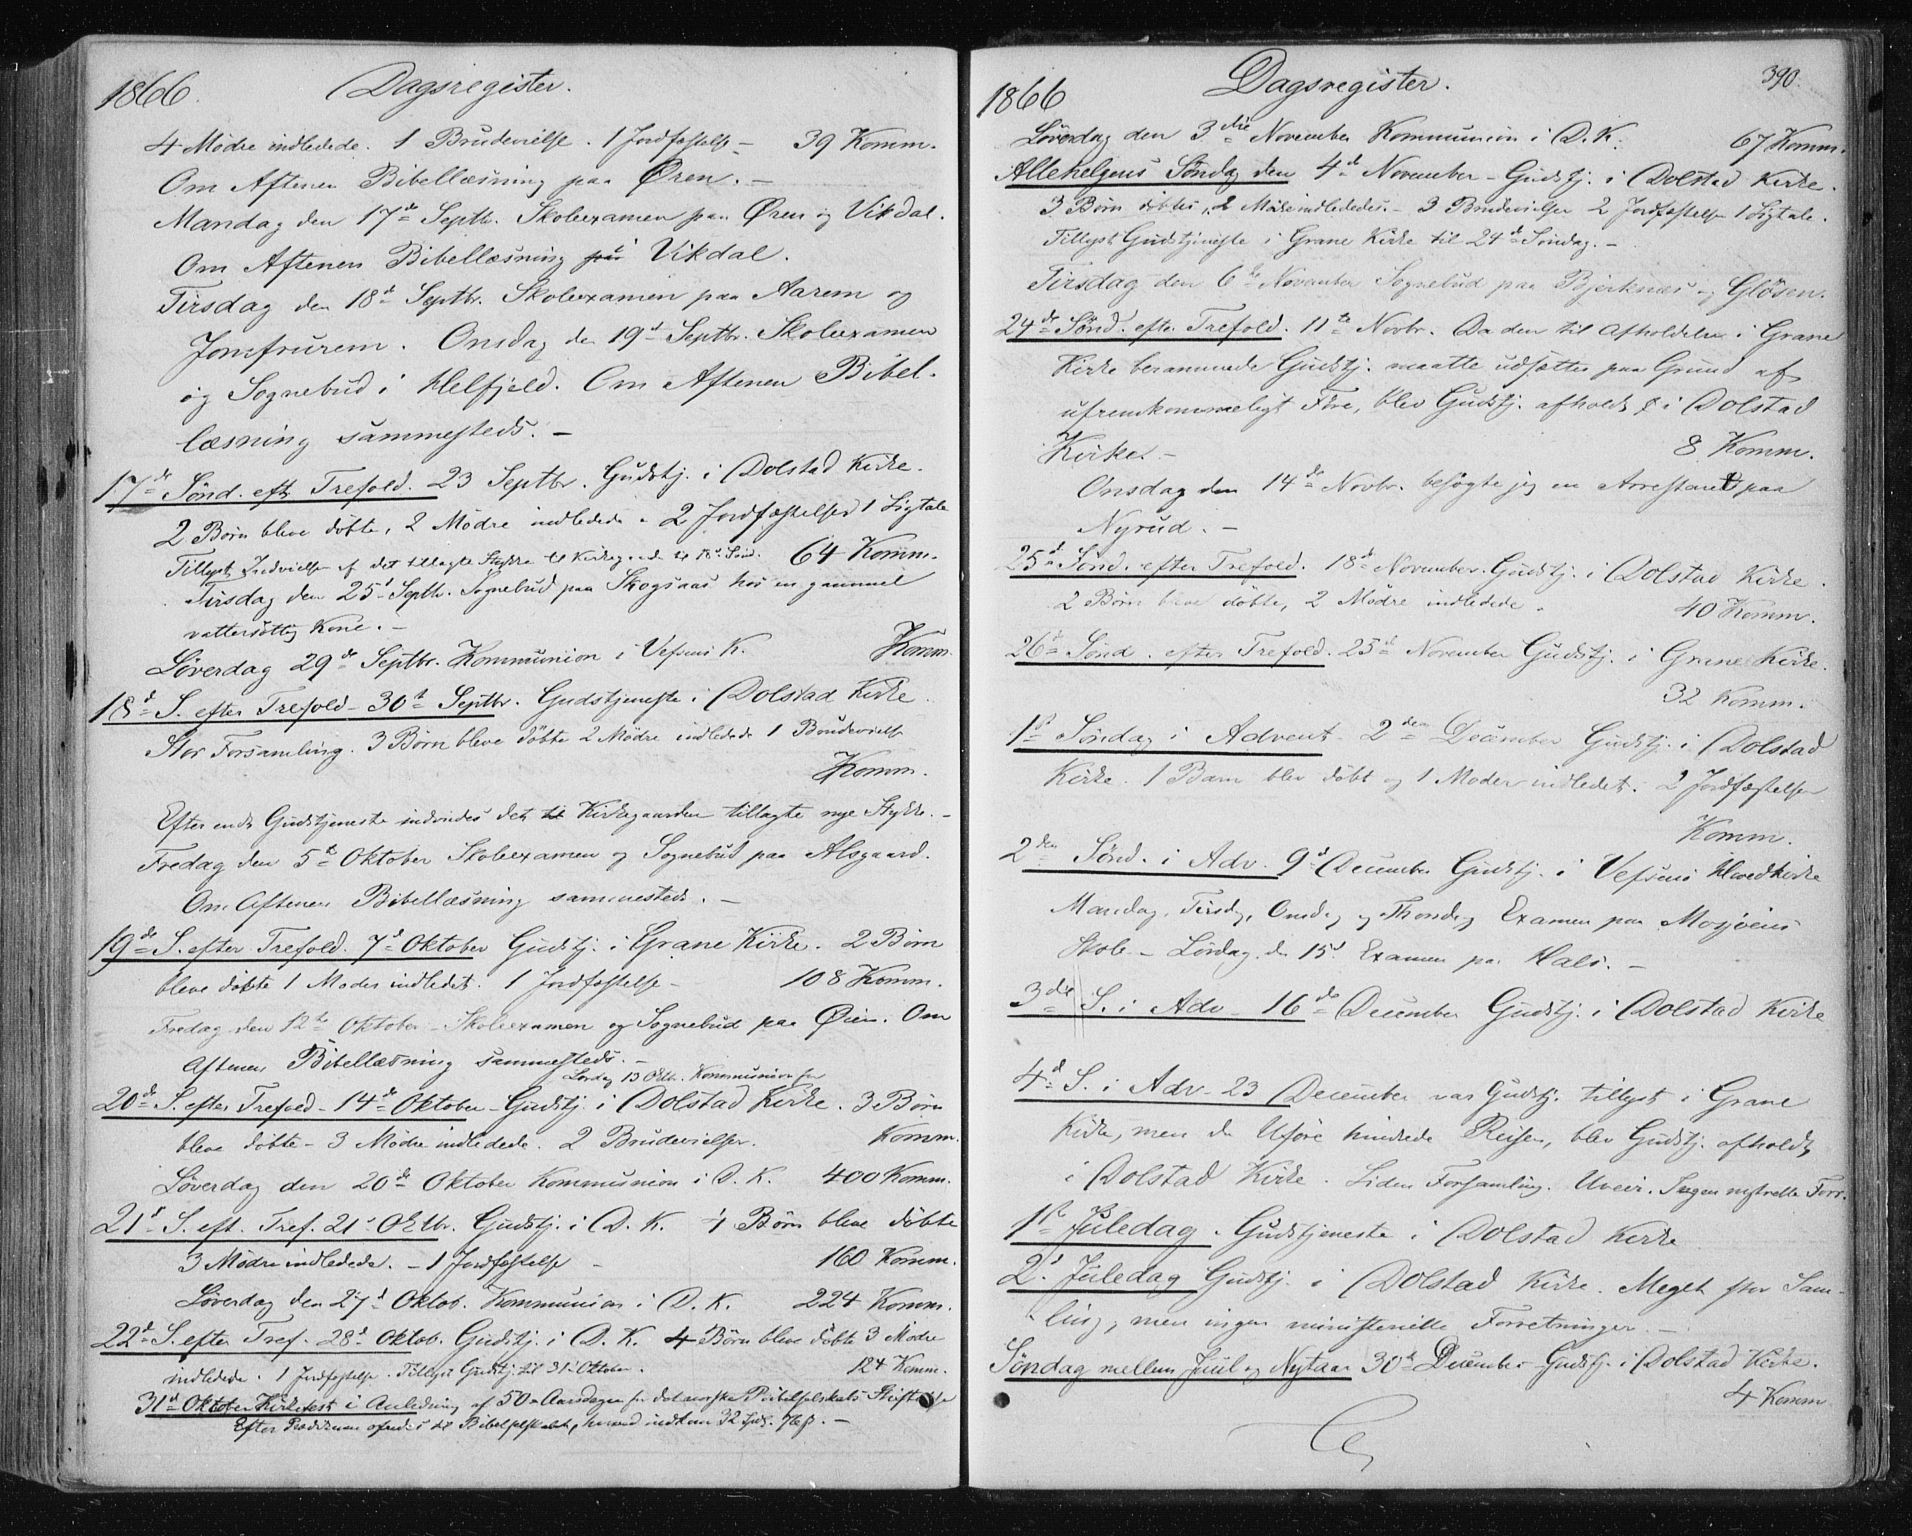 1866. Dagsregister.
4 Mødre indledede. 1 Brudevielse. 1 Jordfæstelse — 39 Komm.
Om Aftenen Bibellæsning paa Øren. —
Mandag den 17de Septbr. Skoleexamen paa Øren og Vikdal.
Om Aftenen Bibellæsning i Vikdal.
Tirsdag den 18d Septbr. Skoleexamen paa Aarem og
Jomfrurem. Onsdag den 19d Septbr. Skoleexamen
og Sognebud i Helfjeld. Om Aftenen Bibel-
læsning sammesteds. —
17de Sønd. eft. Trefold. 23 Septbr. Gudstj. i Dolstad Kirke.
2 Børn bleve døbte, 2 Mødre indledede. 2 Jordfæstelser 1 Ligtale
Tillyst Indvielse af det tillagte Stykke til Kirkeg. til 18d Sønd. 64 Komm.
Tirsdag den 25d Septbr. Sognebud paa Skogsaas hos en gammel
vattersottig Kone. —
Løverdag 29de Septbr. Kommunion i Vefsens K. Komm.
18d S. efter Trefold — 30te Septbr. Gudstjeneste i Dolstad Kirke.
Stor Forsamling. 3 Børn bleve døbte 2 Mødre indledede 1 Brudevielse
Komm.
Efter endt Gudstjeneste indviedes det til Kirkegaarden tillagte nye Stykke. —
Fredag den 5te Oktober Skoleexamen og Sognebud paa Alsgaard.
Om Aftenen Bibellæsning sammesteds. —
19de S. efter Trefold. 7d Oktober Gudstj. i Grane Kirke. 2 Børn
bleve døbte 1 Moder indledet. 1 Jordfæstelse — 108 Komm.
Fredag den 12te Oktober — Skoleexamen og Sognebud paa Øien. Om
Aftenen Bibellæsning sammesteds. —
Lørdag 13 Oktbr. Kommunion
20de S. efter Trefold — 14de Oktober — Gudstj. i Dolstad Kirke. 3 Børn
bleve døbte — 3 Mødre indledede. 2 Brudevielser. Komm.
Løverdag den 20de Oktober Kommunion i D. K. 400 Komm.
21d S. eft. Tref. 21d Oktbr. Gudstj. i D. K. 4 Børn bleve døbte
3 Mødre indledede. — 1 Jordfæstelse — 160 Komm.
Løverdag den 27d Oktob. Kommunion i D. K. 224 Komm.
22de S. efter Tref. 28d Oktob. Gudstj. i D. K. 4 Børn bleve døbte 3 Mødre
indledede. 1 Jordfæstelse. Tillyst Gudstj. til 31d Oktober. 124 Komm.
31d Oktober Kirkefest i Anledning af 50 Aarsdagen for det norske Bibelselskabs Stiftelse
Efter Prædikenen ofredes til Bibelselskabet, hvorved indkom 32 Spd. 76 ß. —
1866 Dagsregister. 390.
Løverdag den 3die November Kommunion i D. K. 67 Komm.
Allehelgens Søndag den 4d November — Gudstj. i Dolstad Kirke.
3 Børn døbtes, 2 Mødre indlededes. — 3 Brudevielser 2 Jordfæstelser 1 Ligtale.
Tillyst Gudstjeneste i Grane Kirke til 24de Søndag. —
Tirsdag den 6te November Sognebud paa Bjerknæs og Gløsen.
24de Sønd. efter Trefold. 11te Novbr. Da den til Afholdelse i Grane
Kirke berammede Gudstj. maatte udsættes paa Grund af
ufremkommeligt Føre, blev Gudstj. afholdt i Dolstad
Kirke. — 8 Komm.
Onsdag den 14de Novbr. besøgte jeg en Arrestant paa
Nyrud. —
25d Sønd. efter Trefold. 18d November. Gudstj. i Dolstad Kirke.
2 Børn bleve døbte, 2 Mødre indledede. 40 Komm.
26d Sønd. efter Trefold. 25d November Gudstj. i Grane Kirke.
32 Komm.
1st Søndag i Advent. 2den December Gudstj. i Dolstad
Kirke. 1 Barn blev døbt og 1 Moder indledet. 2 Jordfæstelser
Komm.
2den Sønd. i Adv. 9d December Gudstj. i Vefsens Hovedkirke
Mandag, Tirsdg, Onsdg og Thorsdg Examen paa Mosjøens
Skole — Lørdag den 15d Examen paa Hals. —
3die S. i Adv — 16de December Gudstj. i Dolstad Kirke
4d S. i Adv — 23 December var Gudstj. tillyst i Grane
Kirke, men da Uføre hindrede Reisen, blev Gudstj. afholdt
i Dolstad Kirke. Liden Forsamling. Uveir. Ingen ministrielle Forr.
1st Juledag. Gudstjeneste i Dolstad Kirke
2d. Juledag Gudstj. i Dolstad Kirke. Meget stor Sam-
ling, men ingen ministerielle Forretninger. —
Søndag mellem Juul og Nytaar 30te December Gudstj. i Dolstad Kirke.
4 Komm